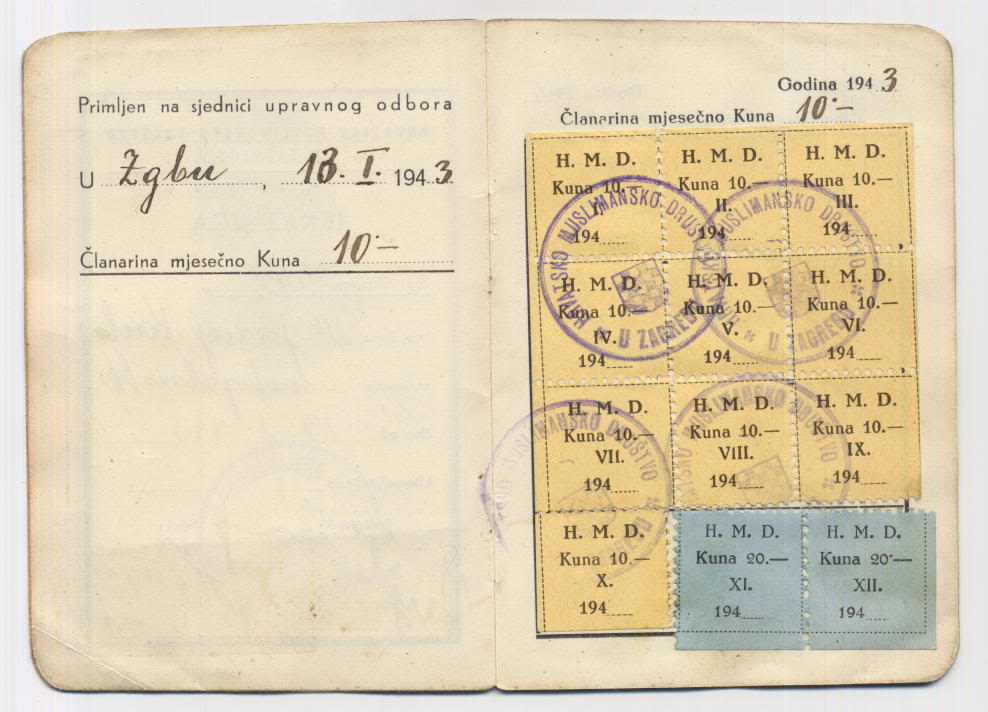 Primljen na sjednici upravnog odbora
U Zgbu, 13. I. 1943
Članarina mjesečno Kuna 10·–
Godina 1943
Članarina mjesečno Kuna 10·–
H. M. D.
Kuna 10.—
I.
194
H. M. D.
Kuna 10.—
II.
194
H. M. D.
Kuna 10.—
III.
194
H. M. D.
Kuna 10.—
IV.
194
H. M. D.
Kuna 10.—
V.
194
H. M. D.
Kuna 10.—
VI.
194
H. M. D.
Kuna 10.—
VII.
194
H. M. D.
Kuna 10.—
VIII.
194
H. M. D.
Kuna 10.—
IX.
194
H. M. D.
Kuna 10.—
X.
194
H. M. D.
Kuna 20.—
XI.
194
H. M. D.
Kuna 20.—
XII.
194
HRVATSKO MUSLIMANSKO DRUŠTVO
* U ZAGREBU *
HRVATSKO MUSLIMANSKO DRUŠTVO
* U ZAGREBU *
MUSLIMANSKO DRUŠTVO
MUSLIMANSKO DRUŠTVO